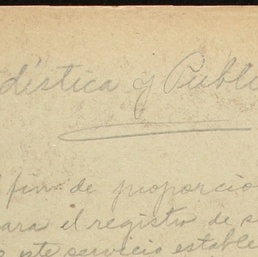 dística y Public
l fin de proporcio
para el registro de s
e este servicio estable